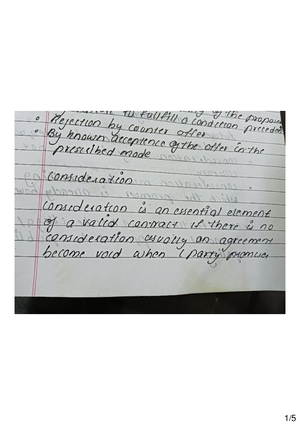 to fullfill a condition precedent
• Rejection by counter offer
• By known acceptence of the offer in the
prescribed mode
Consideration
Consideration is an essential element
of a valid contract if there is no
consideration usually an agreement
become void when 1 party promises
1/5